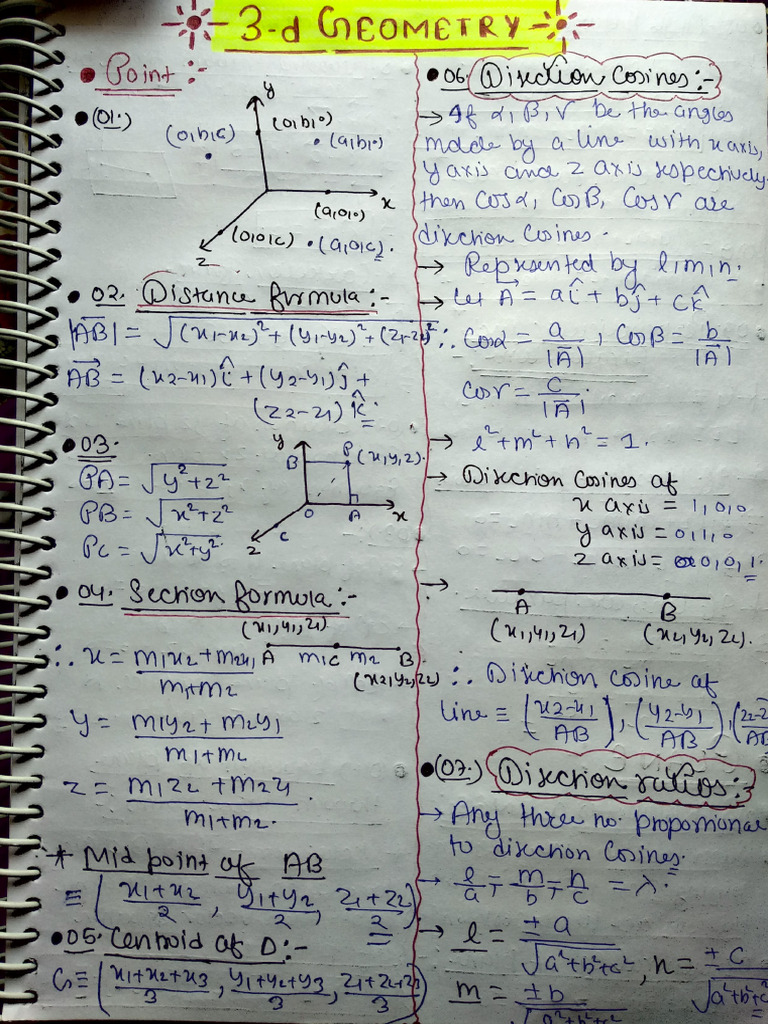 3-d GEOMETRY
• Point :-
• (01.)
y
(0,b,0)
(0,b,c)
(a,b,0)
x
(a,0,0)
(0,0,c)
(a,0,c).
z
• 02. Distance formula :-
|AB| = √(x1-x2)²+(y1-y2)²+(z1-z2)²
AB = (x2-x1)î + (y2-y1)ĵ +
(z2-z1) k̂.
• 03.
PA = √y²+z²
PB = √x²+z²
Pc = √x²+y²
y
B
P (x,y,z).
O
A
x
z
C
• 04. Section formula :-
(x1,y1,z1)
∴ x = m1x2+m2x1 / m1+m2
A m1 C m2 B
(x2,y2,z2)
y = m1y2+m2y1 / m1+m2
z = m1z2+m2z1 / m1+m2.
* Mid point of AB
≡ (x1+x2 / 2, y1+y2 / 2, z1+z2 / 2)
• 05. Centroid of D :-
G ≡ (x1+x2+x3 / 3, y1+y2+y3 / 3, z1+z2+z3 / 3)
• 06. Direction Cosines :-
→ If α, β, γ be the angles
made by a line with x axis,
y axis and z axis respectively
then Cosα, Cosβ, Cosγ are
direction Cosines.
→ Represented by l,m,n.
→ let A = aî + bĵ + ck̂
∴ Cosα = a / |A| , Cosβ = b / |A|
Cosγ = c / |A|.
→ l²+m²+n² = 1.
→ Direction Cosines of
x axis = 1,0,0
y axis = 0,1,0
z axis = 0,0,1.
→
A B
(x1,y1,z1) (x2,y2,z2).
∴ Direction cosine of
line ≡ (x2-x1 / AB), (y2-y1 / AB), (z2-z / AB
• (07.) Direction ratios :-
→ Any three no. proportional
to direction Cosines.
→ l/a = m/b = n/c = λ.
→ l = ± a / √a²+b²+c² , n = ± c / √a²+b²+c
m = ± b / √a²+b²+c²